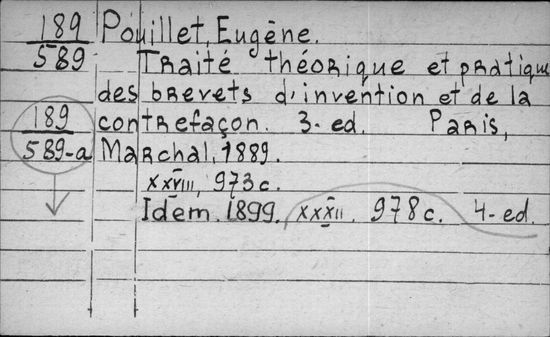 189 Pouillet, Eugène.
589 Traité théorique et pratique
des brevets d'invention et de la
189 contrefaçon. 3-ed. Paris,
589-a Marchal, 1889.
XXVIII, 973 c.
Idem. 1899. XXXII. 978 c. 4-ed.